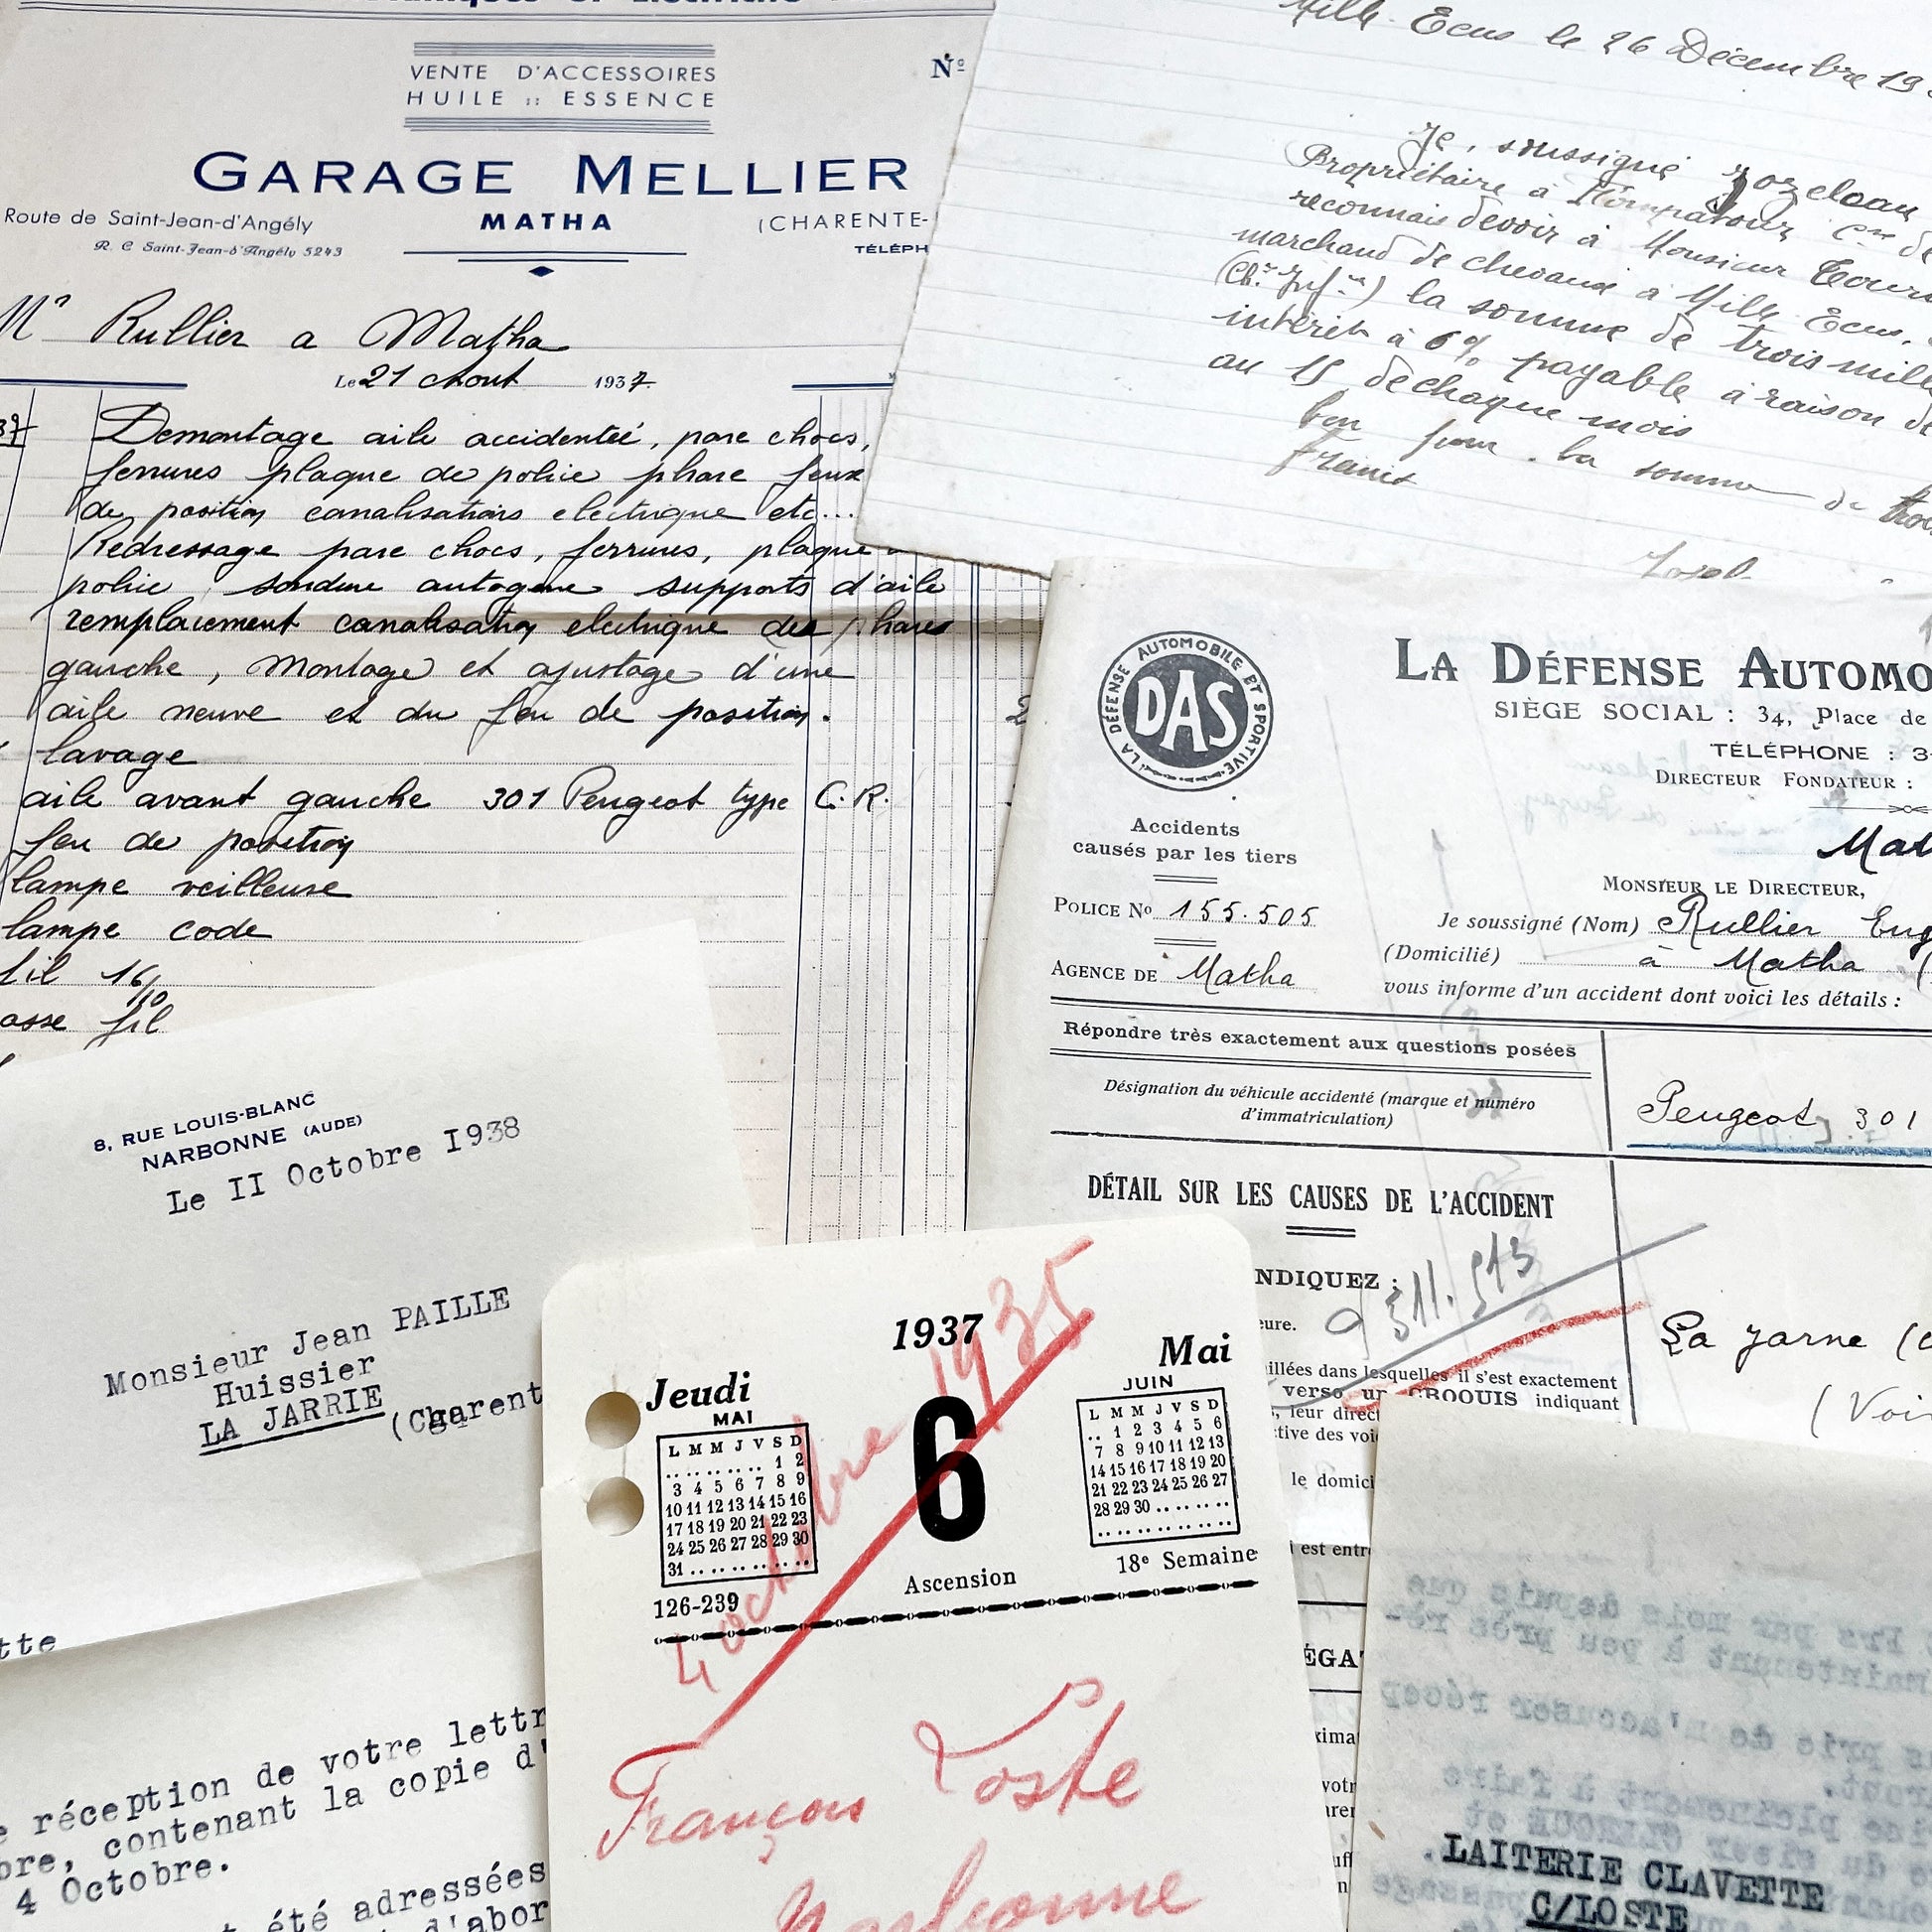 VENTE D'ACCESSOIRES
HUILE :: ESSENCE
Nº
GARAGE MELLIER
Route de Saint-Jean-d'Angély
MATHA
(CHARENTE-
R. C Saint-Jean-d'Angély 5243
TÉLÉPH
Mr Rullier a Matha
Le 21 Aout 1937.
Demontage aile accidenteé, pare chocs,
ferrures plaque de police phare feux
de position canalisations electrique etc...
Redressage pare chocs, ferrures, plaque
police, soudure autogene supports d'aile
remplacement canalisation electrique des phares
gauche, Montage et ajustage d'une
aile neuve et du feu de position.
lavage
aile avant gauche 301 Peugeot type C.R.
feu de position
lampe veilleuse
lampe code
fil 16/10
asse fil
Mille Ecus le 26 Décembre 19
Je, soussigné
Propriétaire à
reconnais devoir à Monsieur
marchand de chevaux à Mille Ecus,
(Ch.te Inf.re) la somme de trois mille
intérêt à 6% payable à raison de
au 15 de chaque mois
bon pour la somme de
francs
LA DÉFENSE AUTOMOBILE ET SPORTIVE
DAS
LA DÉFENSE AUTOMO
SIÈGE SOCIAL : 34, Place de
TÉLÉPHONE : 3
DIRECTEUR FONDATEUR :
Mat
Accidents
causés par les tiers
POLICE Nº 155.505
AGENCE DE Matha
MONSIEUR LE DIRECTEUR,
Je soussigné (Nom) Rullier Eug
(Domicilié) à Matha (
vous informe d'un accident dont voici les détails :
Répondre très exactement aux questions posées
Désignation du véhicule accidenté (marque et numéro
d'immatriculation)
Peugeot 301
DÉTAIL SUR LES CAUSES DE L'ACCIDENT
NDIQUEZ :
eure.
illées dans lesquelles il s'est exactement
verso un CROQUIS indiquant
, leur direct
ctive des voi
le domici
La Jarne (
(Voir
est entr
ÉGA
xima
votr
8, RUE LOUIS-BLANC
NARBONNE (AUDE)
Le II Octobre 1938
Monsieur Jean PAILLE
Huissier
LA JARRIE
(Charent
tte
réception de votre lettr
bre, contenant la copie d'
4 Octobre.
t été adressées
d'abor
1937
Jeudi
Mai
6
MAI
L M M J V S D
.. .. .. .. .. 1 2
3 4 5 6 7 8 9
10 11 12 13 14 15 16
17 18 19 20 21 22 23
24 25 26 27 28 29 30
31 .. .. .. .. .. ..
JUIN
L M M J V S D
.. 1 2 3 4 5 6
7 8 9 10 11 12 13
14 15 16 17 18 19 20
21 22 23 24 25 26 27
28 29 30 .. .. .. ..
.. .. .. .. .. .. ..
126-239
Ascension
18e Semaine
4 octobre 1935
François Loste
Narbonne
LAITERIE CLAVETTE
C/LOSTE